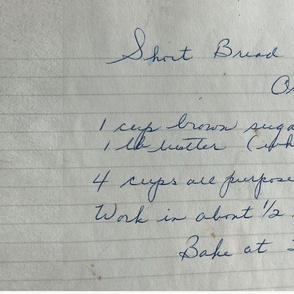 Short Bread
1 cup brown suga
1 lb butter (
4 cups all purpose
Work in about 1/2
Bake at